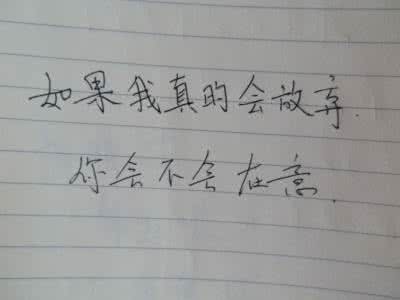 如果我真的会放弃.
你会不会在意.